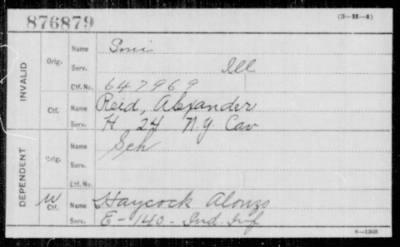 876879
(3-M-4)
INVALID
Orig.
Name
Serv.
Ill
Ctf. No.
647969
Ctf.
Name
Reid, Alexander
Serv.
H 24 N.Y Cav
DEPENDENT
Orig.
Name
Sch
Serv.
W
Ctf.
Name
Haycock Alonzo
Serv.
E - 140 - Ind. Inf